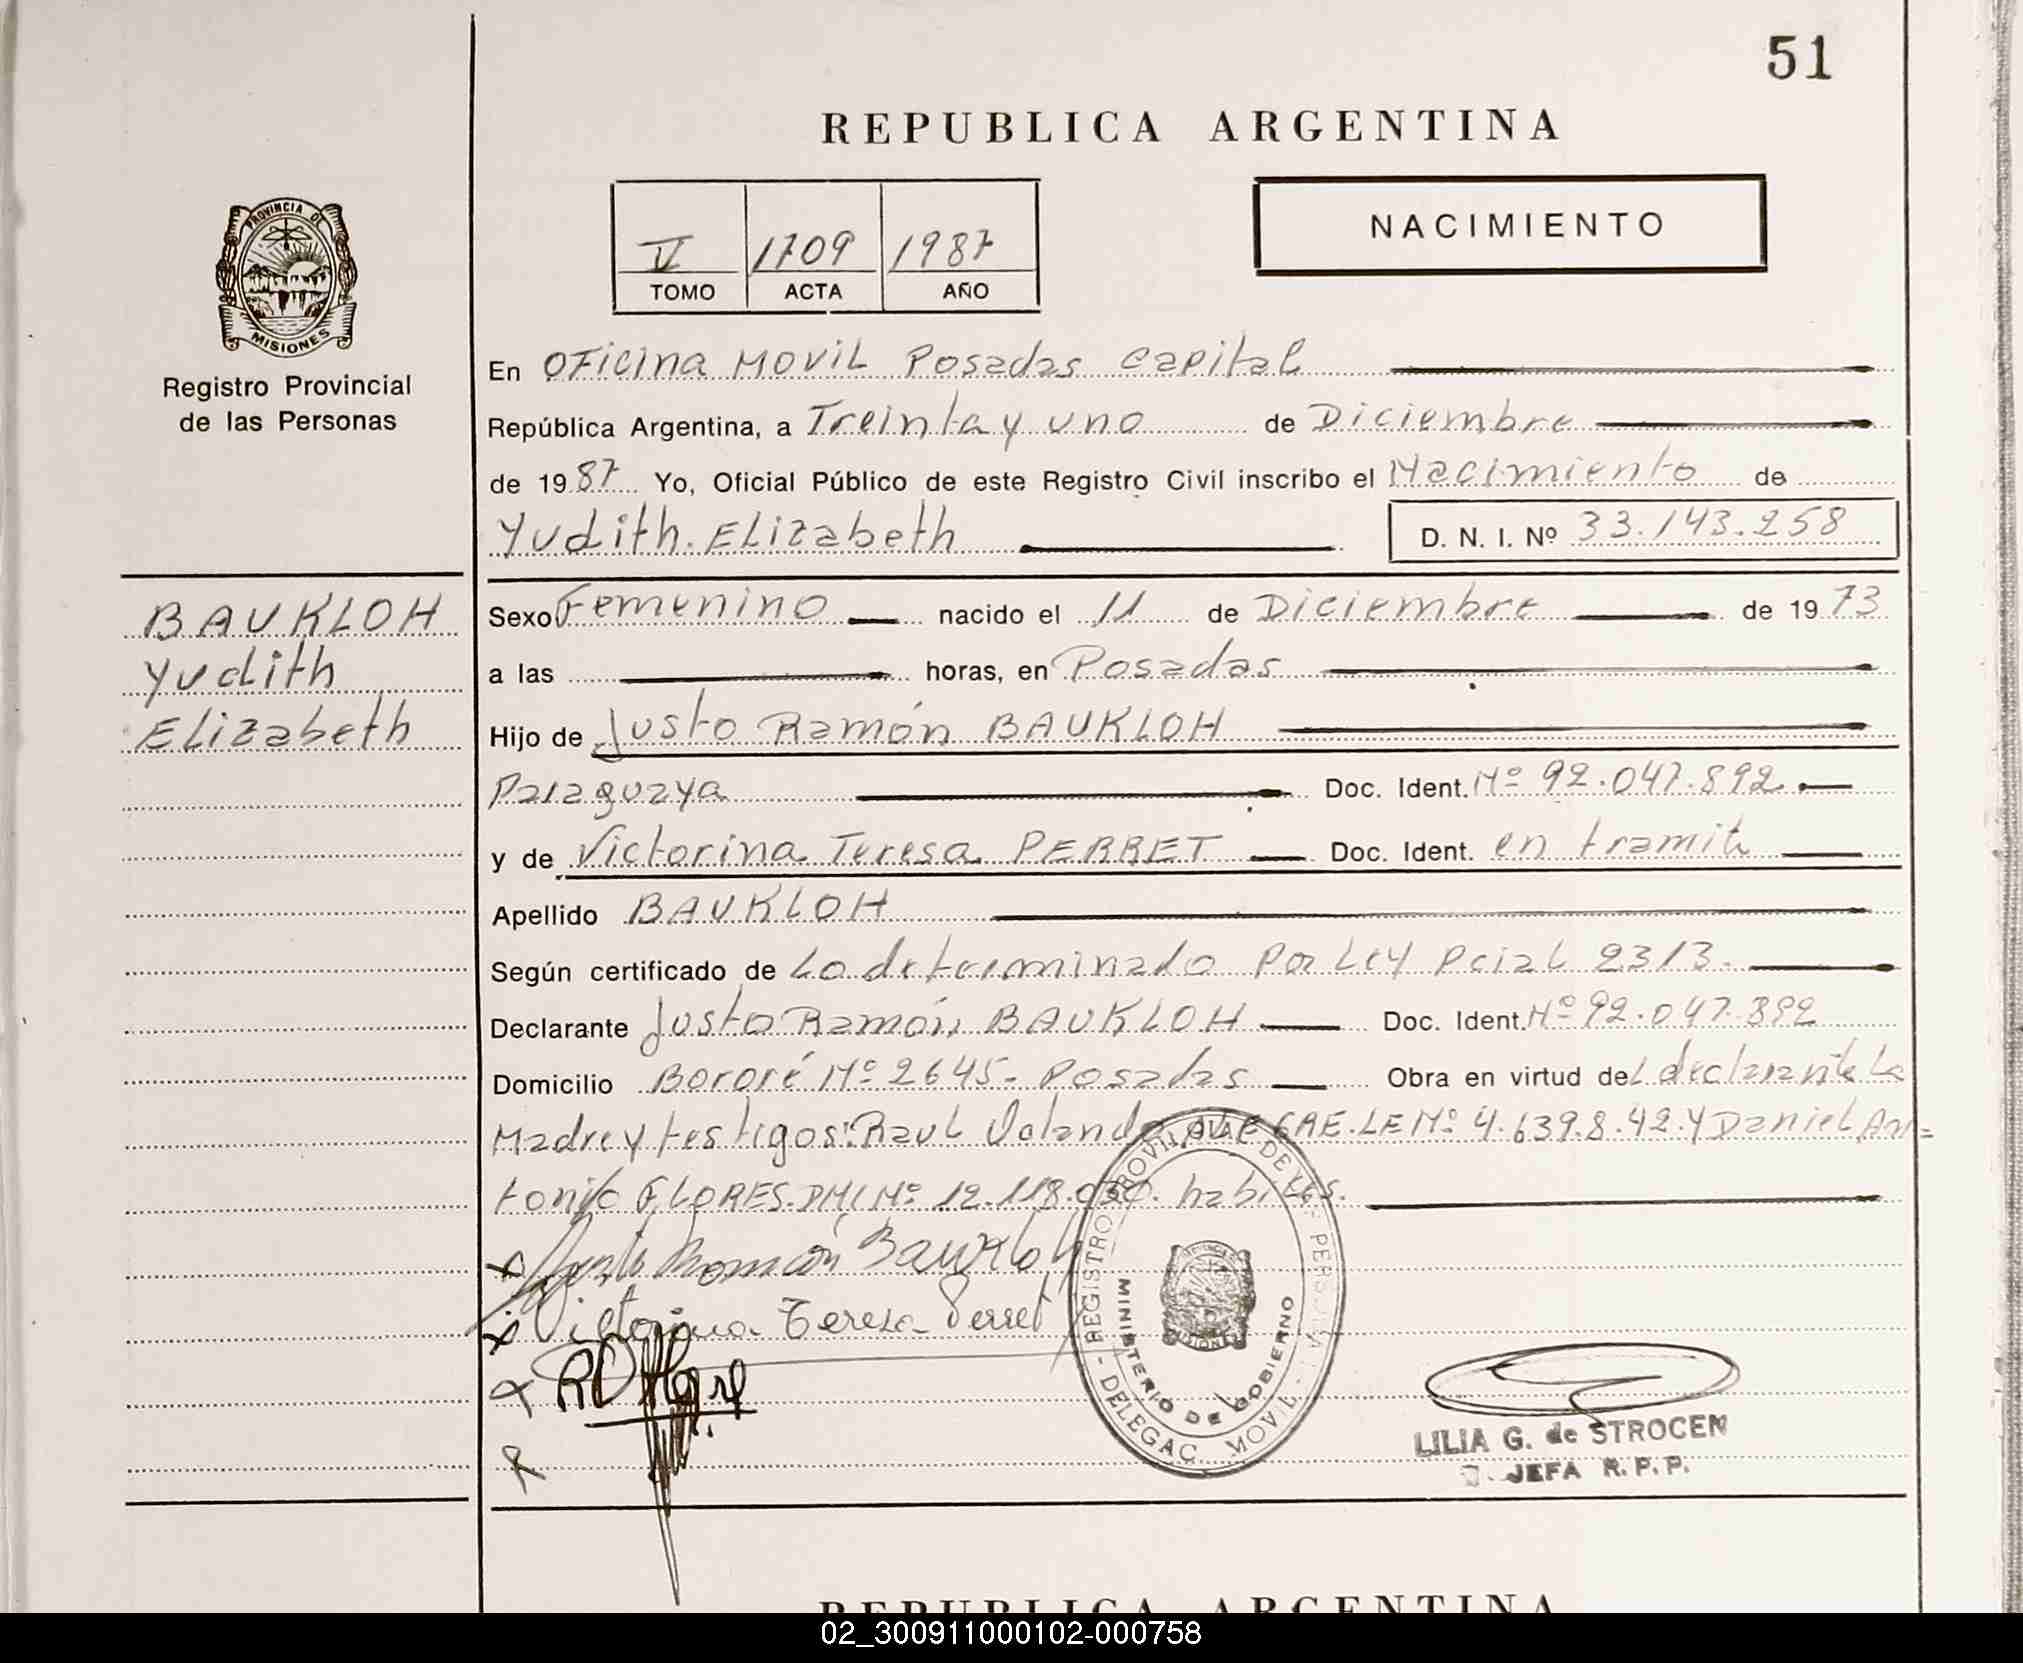 51
REPUBLICA ARGENTINA
V 1709 1987
TOMO ACTA AÑO
NACIMIENTO
PROVINCIA DE
MISIONES
Registro Provincial
de las Personas
En OFicina MOVIL Posadas Capital
República Argentina, a Treinta y uno de Diciembre
de 1987 Yo, Oficial Público de este Registro Civil inscribo el Nacimiento de
Yudith Elizabeth D. N. I. Nº 33.143.258
BAUKLOH
Yudith
Elizabeth
Sexo Femenino nacido el 11 de Diciembre de 1973
a las horas, en Posadas
Hijo de Justo Ramón BAUKLOH
Paraguaya Doc. Ident. Nº 92.047.892
y de Victorina Teresa PERRET Doc. Ident. en tramite
Apellido BAUKLOH
Según certificado de Lo determinado Por Ley Pcial 2313.
Declarante Justo Ramón BAUKLOH Doc. Ident. Nº 92.047.892
Domicilio Bororé Nº 2645 - Posadas Obra en virtud del declarante La
Madre y testigos: Raul LE Nº 4.639.842 y Daniel An=
tonio FLORES. DNI Nº 12.118. habiles.
Justo Ramón Baukloh
Victorina Teresa Perret
REGISTRO PROVINCIAL DE LAS PERSONAS
DELEGAC. MOVIL
MINISTERIO DE GOBIERNO
LILIA G. de STROCEN
JEFA R. P. P.
REPUBLICA ARGENTINA
02_300911000102-000758